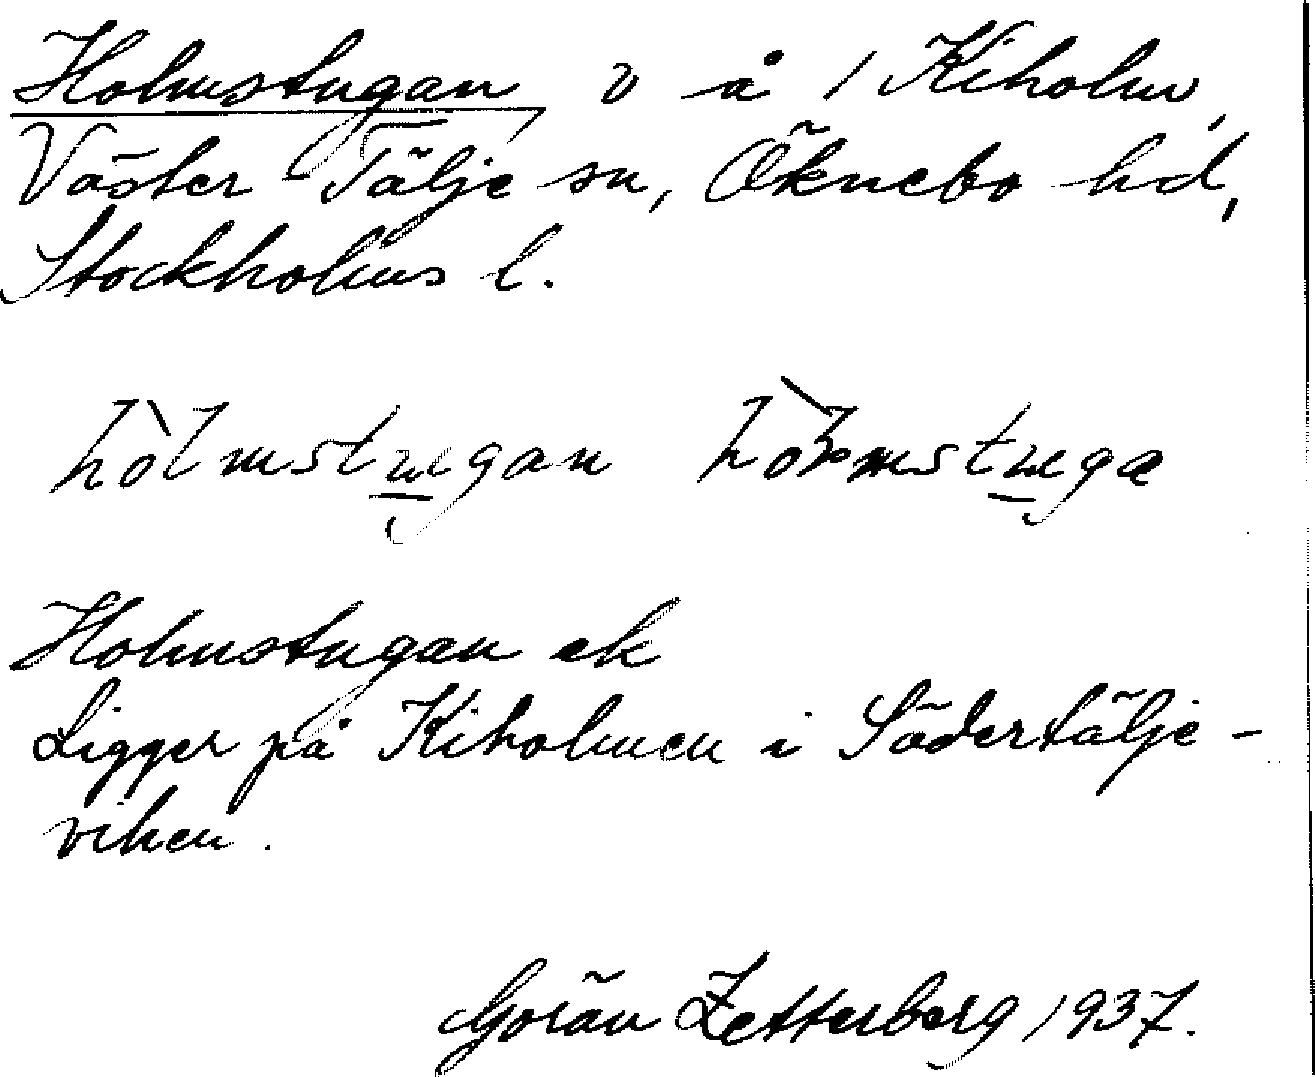 Holmstugan, v å 1 Kiholm,
Väster Tälje sn, Öknebo hd,
Stockholms l.
hòlmstugan hòlmstuga
Holmstugan ek
Ligger på Kiholmen i Södertälje-
viken.
Göran Zetterberg 1937.